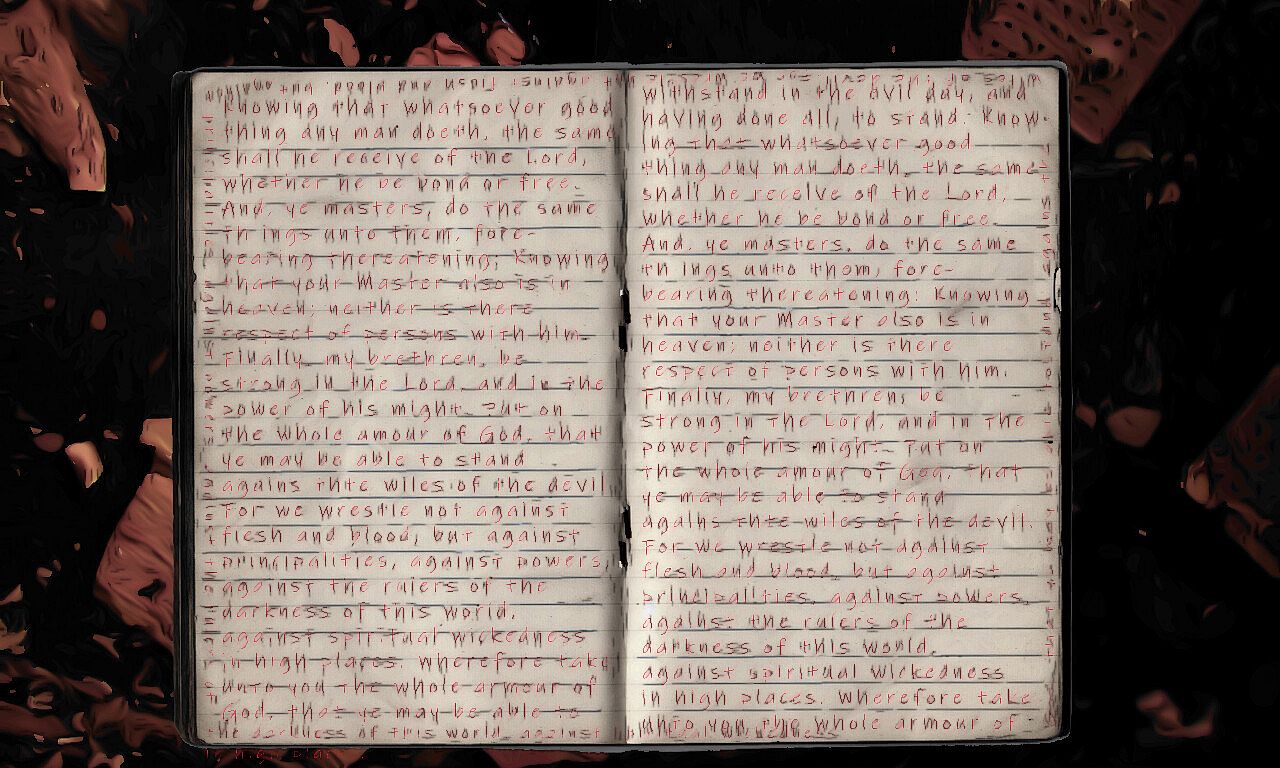 Knowing that whatsoever good
thing any man doeth, the same
shall he receive of the Lord,
whether he be bond or free.
And, ye masters, do the same
th ings unto them, fore-
bearing thereatening; Knowing
that your Master also is in
heaven; neither is there
respect of persons with him.
Finally, my brethren, be
strong in the Lord, and in the
power of his might. Put on
the whole amour of God, that
ye may be able to stand
agains thte wiles of the devil
For we wrestle not against
flesh and blood, but against
principalities, against powers,
against the rulers of the
darkness of this world,
against spiritual wickedness
in high places. Wherefore take
unto you the whole armour of
God, that ye may be able to
the darkness of this world, against
withstand in the avil day, and
having done all, to stand. Know-
ing that whatsoever good
thing any man doeth, the same
shall he receive of the Lord,
whether he be bond or free.
And, ye masters, do the same
th ings unto them, fore-
bearing thereatening: Knowing
that your Master also is in
heaven; neither is there
respect of persons with him.
Finally, my brethren, be
strong in the Lord, and in the
power of his might. Put on
the whole amour of God, that
ye may be able to stand
agains thte wiles of the devil.
For we wrestle not against
flesh and blood, but against
principalities, against powers,
against the rulers of the
darkness of this world,
against spiritual wickedness
in high places. Wherefore take
unto you the whole armour of